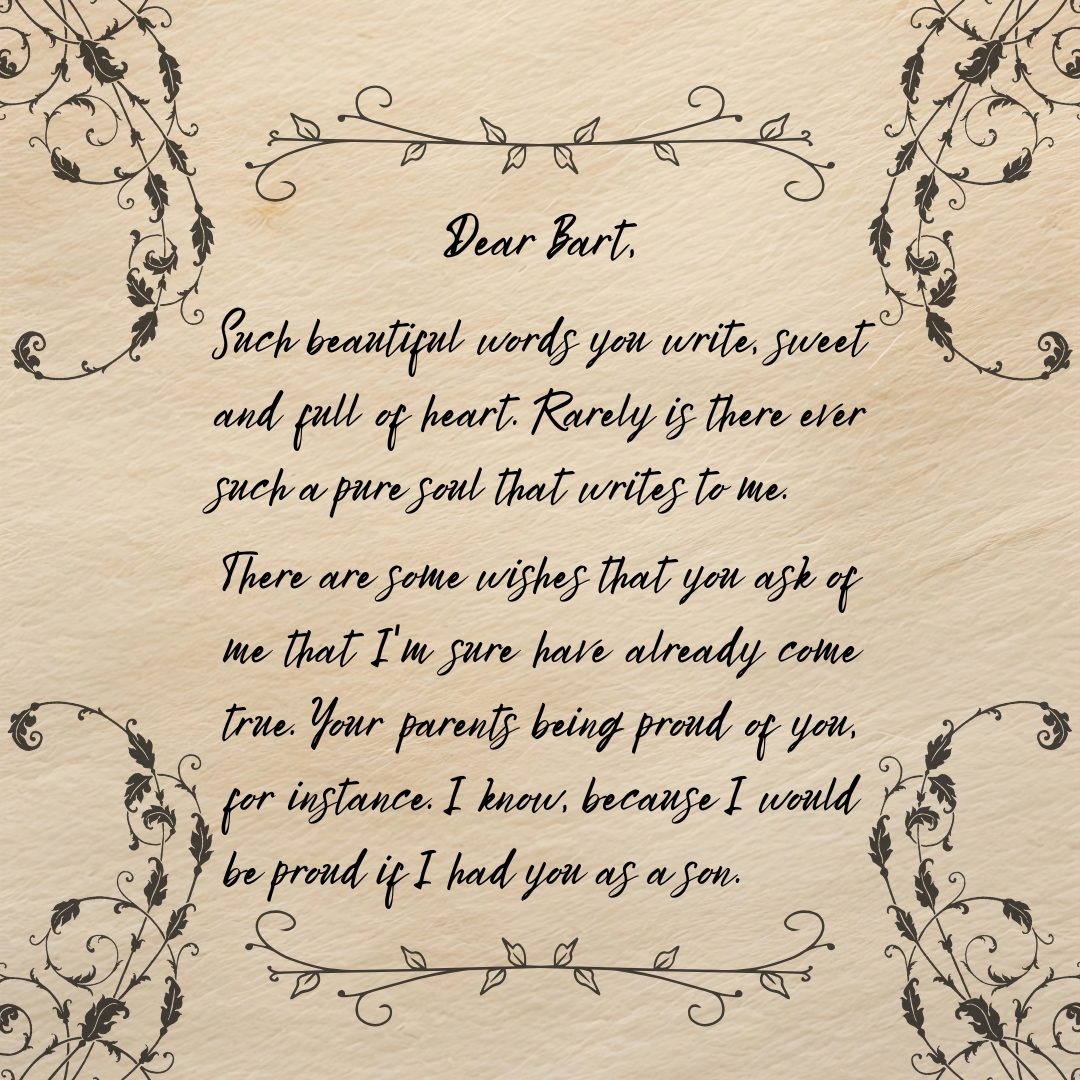 Dear Bart,
Such beautiful words you write, sweet
and full of heart. Rarely is there ever
such a pure soul that writes to me.
There are some wishes that you ask of
me that I'm sure have already come
true. Your parents being proud of you,
for instance. I know, because I would
be proud if I had you as a son.